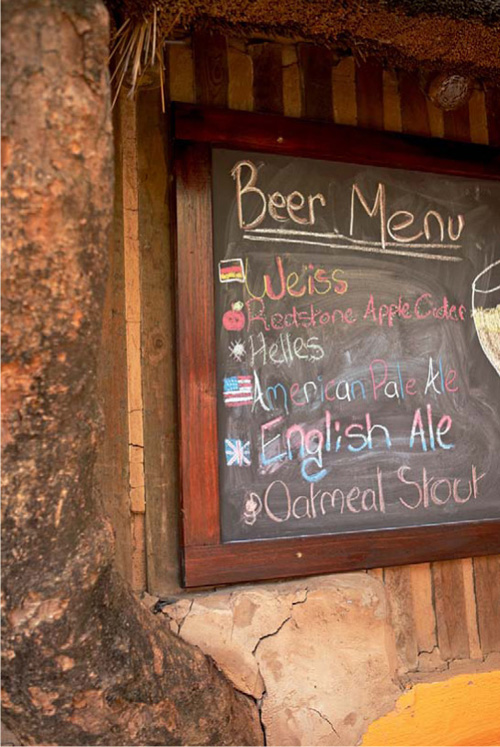 Beer Menu
Weiss
Redstone Apple Cider
Helles
American Pale Ale
English Ale
Oatmeal Stout